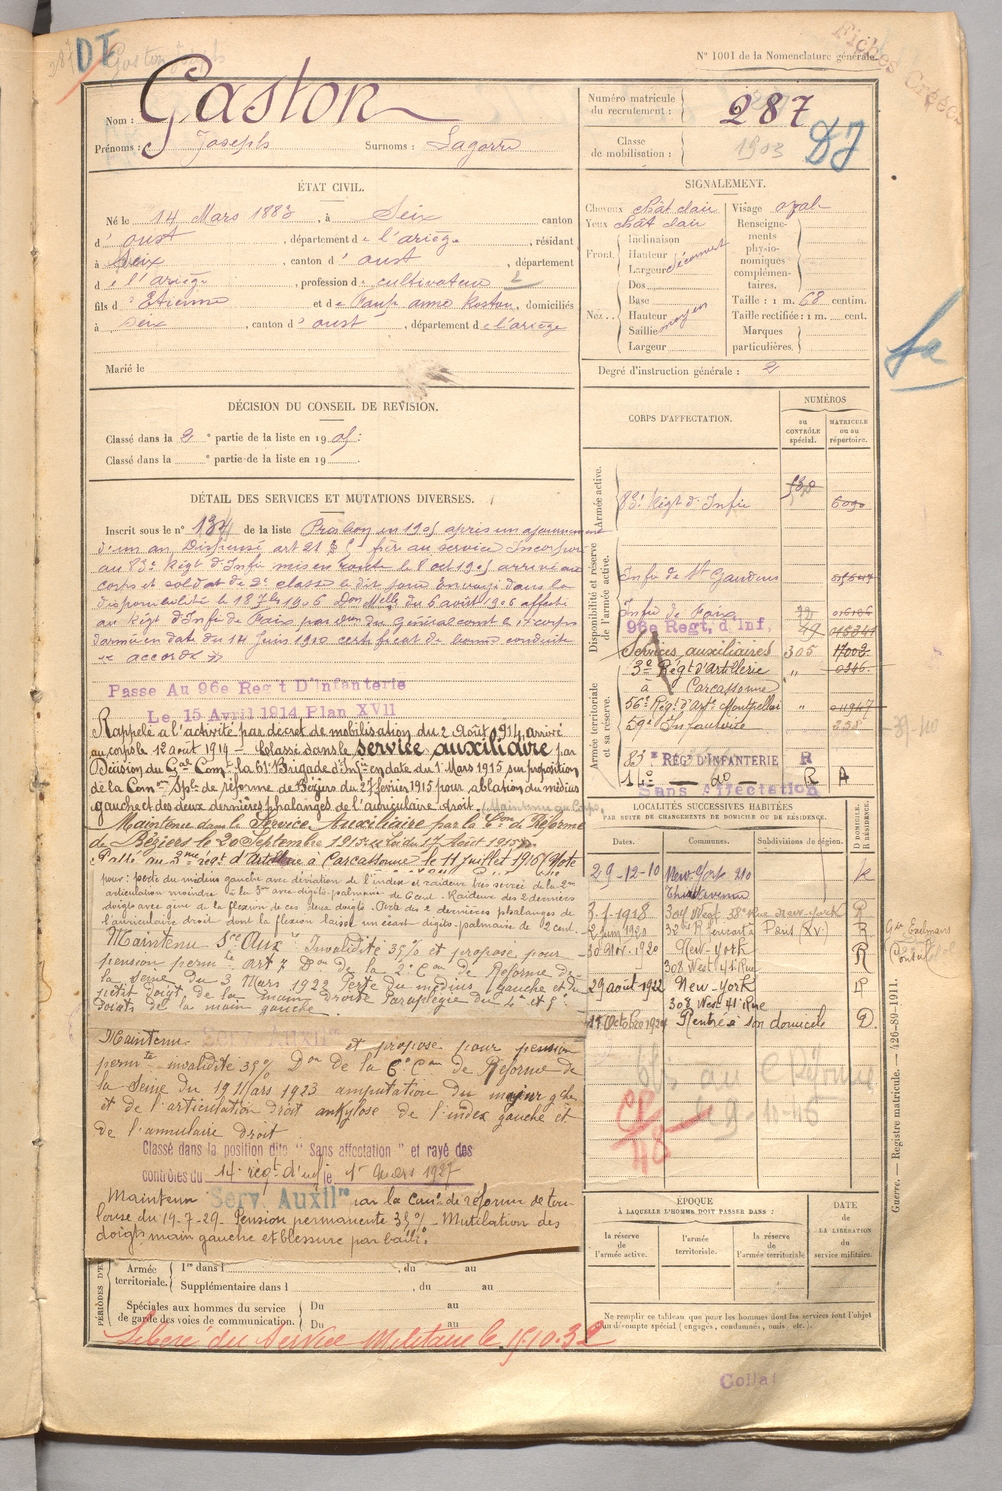 DI
287
Gaston Joseph
N° 1001 de la Nomenclature générale.
Fiches Créées
Nom : Gaston
Prénoms : Joseph Surnoms : Lagorre
Numéro matricule du recrutement : 287
Classe de mobilisation : 1903
DJ
ÉTAT CIVIL.
Né le 14 Mars 1883, à Seix canton
d' oust, département de l'ariège, résidant
à Seix, canton d' oust, département
de l'ariège, profession de cultivateur 2
fils d' Etienne et de anne, domiciliés
à Seix, canton d' oust, département de l'ariège
Marié le
SIGNALEMENT.
Cheveux chât clair Visage oval
Yeux chât clair
Front Inclinaison Hauteur Largeur découvert
Nez Dos Base Hauteur Saillie Largeur moyen
Renseignements physionomiques complémentaires.
Taille : 1 m. 68 centim.
Taille rectifiée : 1 m. cent.
Marques particulières.
Degré d'instruction générale : 2
DÉCISION DU CONSEIL DE RÉVISION.
Classé dans la 2e partie de la liste en 1905.
Classé dans la ° partie de la liste en 19
CORPS D'AFFECTATION.
NUMÉROS
au CONTRÔLE spécial.
MATRICULE ou au répertoire.
Armée active.
83e Régt d'Infie 6090
Disponibilité et réserve de l'armée active.
Infie de St Gaudens
Infie de Foix
96e Regt, d'Inf. 49
Services auxiliaires 305 17002
3e Régt d'Artillerie „ 0346
à Carcassonne
Armée territoriale et sa réserve.
56e Régt d'Artie Montpellier „ 01947
59e Infanterie 238
83e REGt D'INFANTERIE R
14e - do - R A
Sans Affectation
DÉTAIL DES SERVICES ET MUTATIONS DIVERSES.
Inscrit sous le n° 134 de la liste en 1905 après un ajournement
d'un an Dispensé art 21 frère au service Incorporé
au 83e Régt d'Infie mis en route le 8 oct 1905 arrivé au
corps et soldat de 2e classe le dit jour Envoyé dans la
disponibilité le 18 7bre 1906 Don Melle du 6 août 1906 affecté
au Régt d'Infie de Foix par Don du Général comt le 17e corps
d'armée en date du 14 Juin 1910 certificat de bonne conduite
« accordé »
Passe Au 96e Regt D'Infanterie
Le 15 Avril 1914 Plan XVII
Rappelé à l'activité par décret de mobilisation du 2 Août 1914, arrivé
au corps le 12 août 1914 – Classé dans le service auxiliaire par
Décision du Gal Comt la 61e Brigade d'Infie en date du 1r Mars 1915 sur proposition
de la Comon Sple de réforme de Béziers du 27 février 1915 pour ablation du médius
gauche et des deux dernières phalanges de l'auriculaire droit. Maintenu au Corps.
Maintenu dans le Service Auxiliaire par la Con de Réforme
de Béziers le 20 Septembre 1915 Loi du 17 Août 1915
Passé au 3me régt d'Artillerie à Carcassonne le 11 juillet
pour: perte du médius gauche avec déviation de l'index et raideur très serrée de la 2me
articulation moindre à la 3me avec digito-palmaire de 6 cent. Raideur des 2 derniers
doigts avec gêne de la flexion de ces deux doigts. Perte des 2 dernières phalanges de
l'auriculaire droit dont la flexion laisse un écart digito-palmaire de 2 cent.
Maintenu Sce Auxre Invalidité 35% et proposé pour
pension permte art 7 Don de la 2e Con de Réforme de
la Seine du 3 Mars 1922 Perte du médius gauche et du
petit doigt de la main droite
doigts de la main gauche.
Maintenu Serv. Auxilre et proposé pour pension
permte invalidité 35% Don de la 6e Con de Réforme de
la Seine du 19 Mars 1923 amputation du majeur gche
et de l'articulation droit ankylose de l'index gauche et
de l'annulaire droit
Classé dans la position dite " Sans affectation " et rayé des
contrôles du 14e régt d'inf le 1r Mars 1927
Maintenu Serv. Auxilre par la Comon de réforme de Tou-
louse du 19-7-29 - Pension permanente 35% - Mutilation des
doigts main gauche et blessure par balle.
LOCALITÉS SUCCESSIVES HABITÉES
PAR SUITE DE CHANGEMENTS DE DOMICILE OU DE RÉSIDENCE.
Dates. Communes. Subdivisions de région. D DOMICILE. R RÉSIDENCE.
29-12-10 New-York 210 R
Third avenue
3-1-1918 304 West 38e Rue New-York R
2 Juin 1920 Paris (XV) R
30 Nov. 1920 New-York R
308 West 41e Rue
29 août 1922 New-York R
308 West 41e Rue
15 Octobre 1924 Rentré à son domicile D.
C Réforme
9-11-46
CP
48
ÉPOQUE
À LAQUELLE L'HOMME DOIT PASSER DANS :
la réserve de l'armée active.
l'armée territoriale.
la réserve de l'armée territoriale
DATE de LA LIBÉRATION du service militaire.
PÉRIODES D'E
Armée territoriale. 1re dans l , du au
Supplémentaire dans l , du au
Spéciales aux hommes du service Du au
de garde des voies de communication. Du au
Ne remplir ce tableau que pour les hommes dont les services sont l'objet
d'un décompte spécial (engagés, condamnés, omis, etc.).
Libéré du Service Militaire le 15-10-32
Guerre. — Registre matricule. — 426-89-1911.
Collat